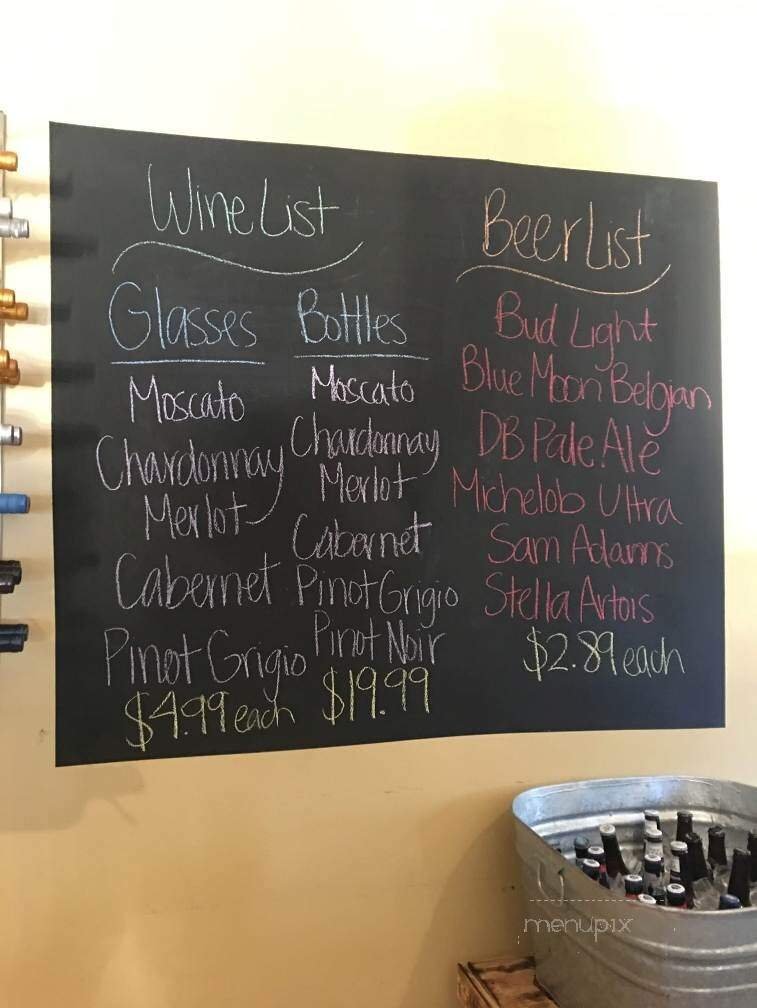 Wine List
Glasses
Moscato
Chardonnay
Merlot
Cabernet
Pinot Grigio
$4.99 each
Bottles
Moscato
Chardonnay
Merlot
Cabernet
Pinot Grigio
Pinot Noir
$19.99
Beer List
Bud Light
Blue Moon Belgian
DB Pale Ale
Michelob Ultra
Sam Adams
Stella Artois
$2.89 each
menupix